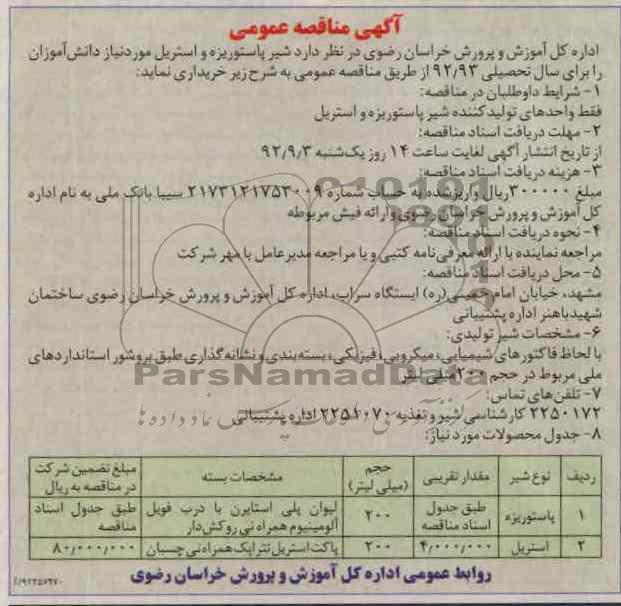 آگهی مناقصه عمومی
اداره کل آموزش و پرورش خراسان رضوی در نظر دارد شیر پاستوریزه و استریل موردنیاز دانش‌آموزان
را برای سال تحصیلی ۹۲/۹۳ از طریق مناقصه عمومی به شرح زیر خریداری نماید:
۱- شرایط داوطلبان در مناقصه:
فقط واحدهای تولیدکننده شیر پاستوریزه و استریل
۲- مهلت دریافت اسناد مناقصه:
از تاریخ انتشار آگهی لغایت ساعت ۱۴ روز یک‌شنبه ۹۲/۹/۳
۳- هزینه دریافت اسناد مناقصه:
مبلغ ۳۰۰۰۰۰ ریال واریزشده به حساب شماره ۲۱۷۳۱۲۱۷۵۲۰۰۹ سیبا بانک ملی به نام اداره
کل آموزش و پرورش خراسان رضوی و ارائه فیش مربوطه
۴- نحوه دریافت اسناد مناقصه:
مراجعه نماینده با ارائه معرفی‌نامه کتبی و یا مراجعه مدیرعامل با مهر شرکت
۵- محل دریافت اسناد مناقصه:
مشهد، خیابان امام خمینی(ره) ایستگاه سراب، اداره کل آموزش و پرورش خراسان رضوی ساختمان
شهید باهنر اداره پشتیبانی
۶- مشخصات شیر تولیدی:
با لحاظ فاکتورهای شیمیایی، میکروبی، فیزیکی، بسته‌بندی و نشانه‌گذاری طبق بروشور استانداردهای
ملی مربوط در حجم ۲۰۰ میلی لیتر
۷- تلفن‌های تماس:
۲۲۵۰۱۷۲ کارشناسی شیر و تغذیه ۲۲۵۱۰۷۰ اداره پشتیبانی
۸- جدول محصولات مورد نیاز:
ParsNamadData
ردیف نوع شیر مقدار تقریبی حجم (میلی لیتر) مشخصات بسته مبلغ تضمین شرکت در مناقصه به ریال
۱ پاستوریزه طبق جدول اسناد مناقصه ۲۰۰ لیوان پلی استایرن با درب فویل آلومینیوم همراه نی روکش‌دار طبق جدول اسناد مناقصه
۲ استریل ۴٫۰۰۰٫۰۰۰ ۲۰۰ پاکت استریل تتراپک همراه نی چسبان ۸۰٫۰۰۰٫۰۰۰
روابط عمومی اداره کل آموزش و پرورش خراسان رضوی